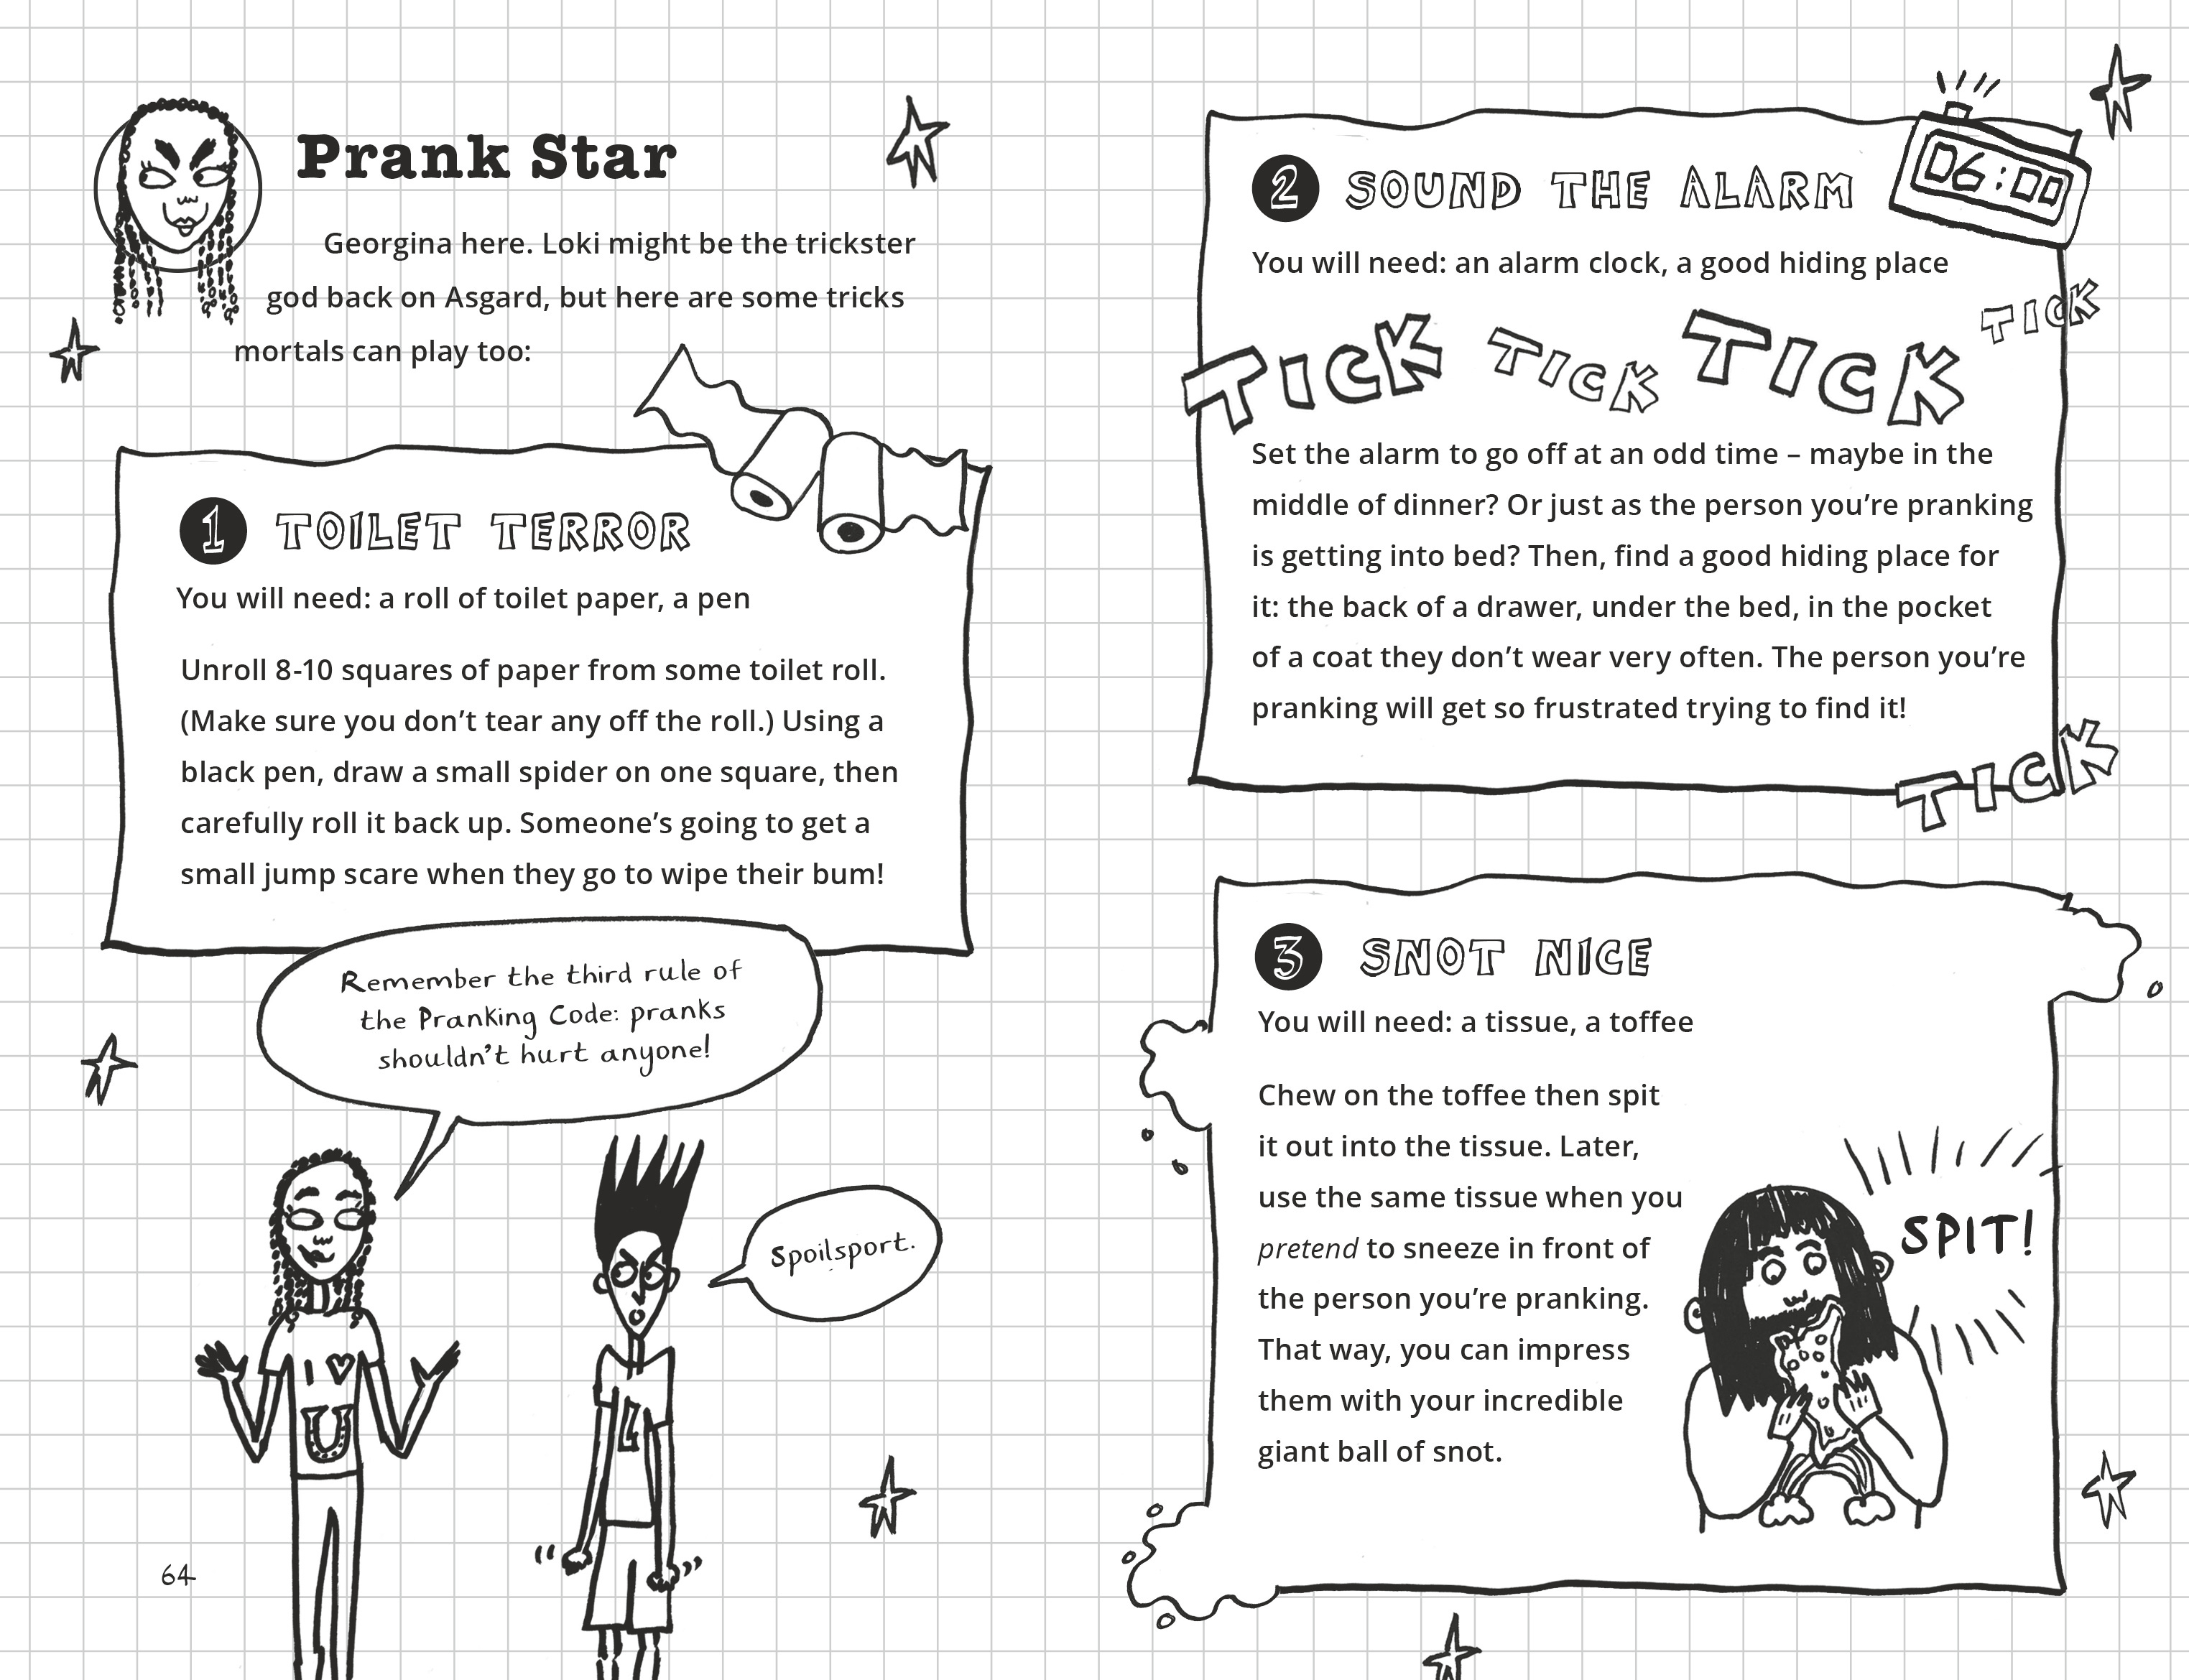 Prank Star
Georgina here. Loki might be the trickster
god back on Asgard, but here are some tricks
mortals can play too:
1 TOILET TERROR
You will need: a roll of toilet paper, a pen
Unroll 8-10 squares of paper from some toilet roll.
(Make sure you don’t tear any off the roll.) Using a
black pen, draw a small spider on one square, then
carefully roll it back up. Someone’s going to get a
small jump scare when they go to wipe their bum!
Remember the third rule of
the Pranking Code: pranks
shouldn’t hurt anyone!
Spoilsport.
I ♡
U
L
64
06:00
2 SOUND THE ALARM
You will need: an alarm clock, a good hiding place
TICK TICK TICK TICK
Set the alarm to go off at an odd time – maybe in the
middle of dinner? Or just as the person you’re pranking
is getting into bed? Then, find a good hiding place for
it: the back of a drawer, under the bed, in the pocket
of a coat they don’t wear very often. The person you’re
pranking will get so frustrated trying to find it!
TICK
3 SNOT NICE
You will need: a tissue, a toffee
Chew on the toffee then spit
it out into the tissue. Later,
use the same tissue when you
pretend to sneeze in front of
the person you’re pranking.
That way, you can impress
them with your incredible
giant ball of snot.
SPIT!